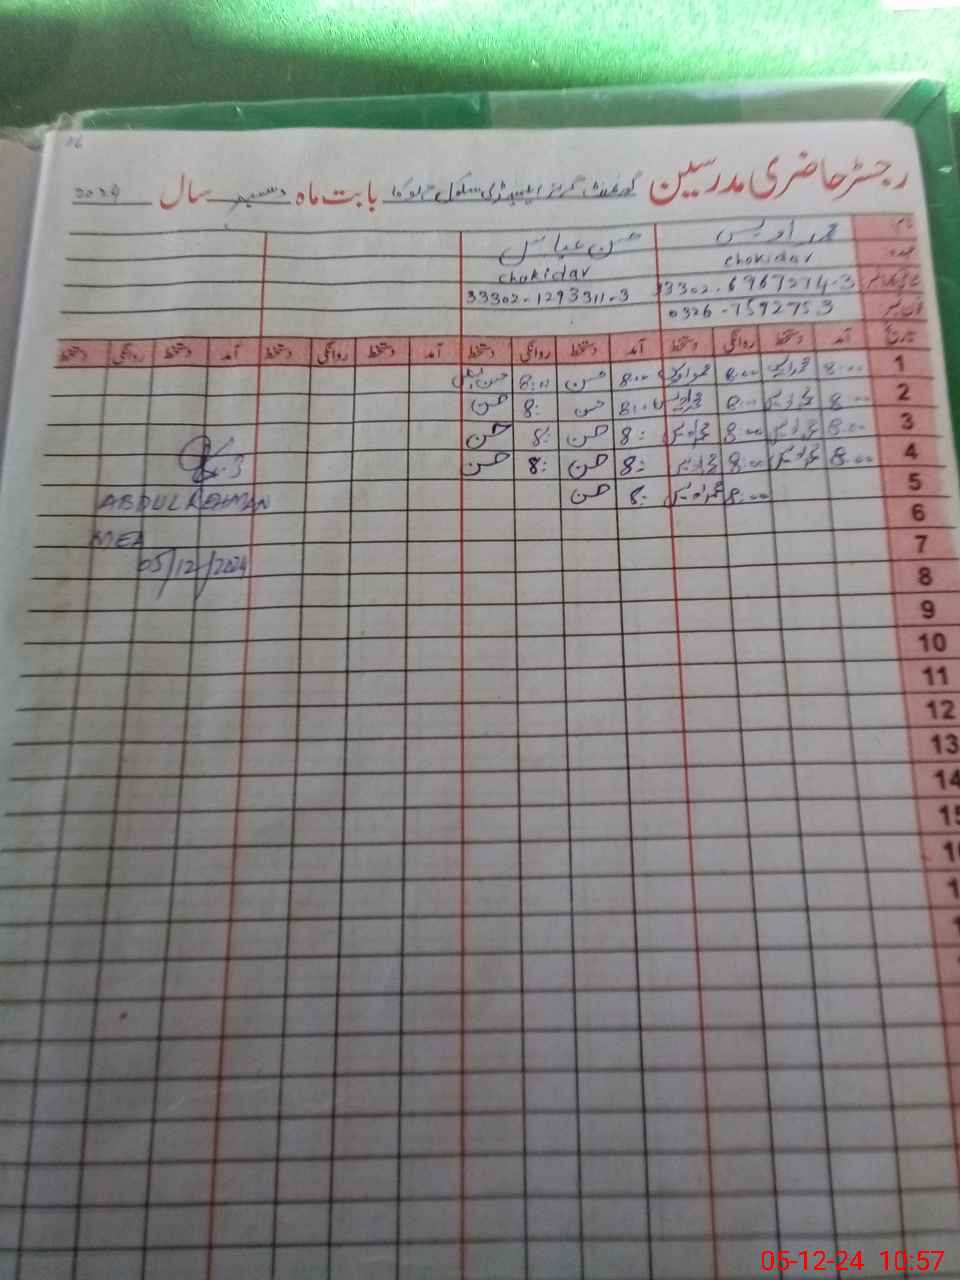 16
رجسٹر حاضری مدرسین گورنمنٹ گرلز ایلیمنٹری سکول بابت ماہ دسمبر سال 2024
نام محمد اویس حسن عباس
عہدہ chokidar chokidar
شناختی کارڈ نمبر 33302-6967274-3 33302-1293311-3
فون نمبر 0326-7592753
تاریخ آمد دستخط روانگی دستخط آمد دستخط روانگی دستخط آمد دستخط روانگی دستخط آمد دستخط روانگی دستخط
1 8:00 محمد اویس 8:00 محمد اویس 8:00 حسن 8:00 حسن عباس
2 8:00 محمد اویس 8:00 محمد اویس 8:00 حسن 8: حسن
3 8:00 محمد اویس 8:00 محمد اویس 8: حسن 8: حسن
4 8:00 محمد اویس 8:00 محمد اویس 8: حسن 8: حسن
5 8:00 محمد اویس 8: حسن
6
7
8
9
10
11
12
13
14
15
ABDUL REHMAN
MEA
05/12/2024
05-12-24 10:57